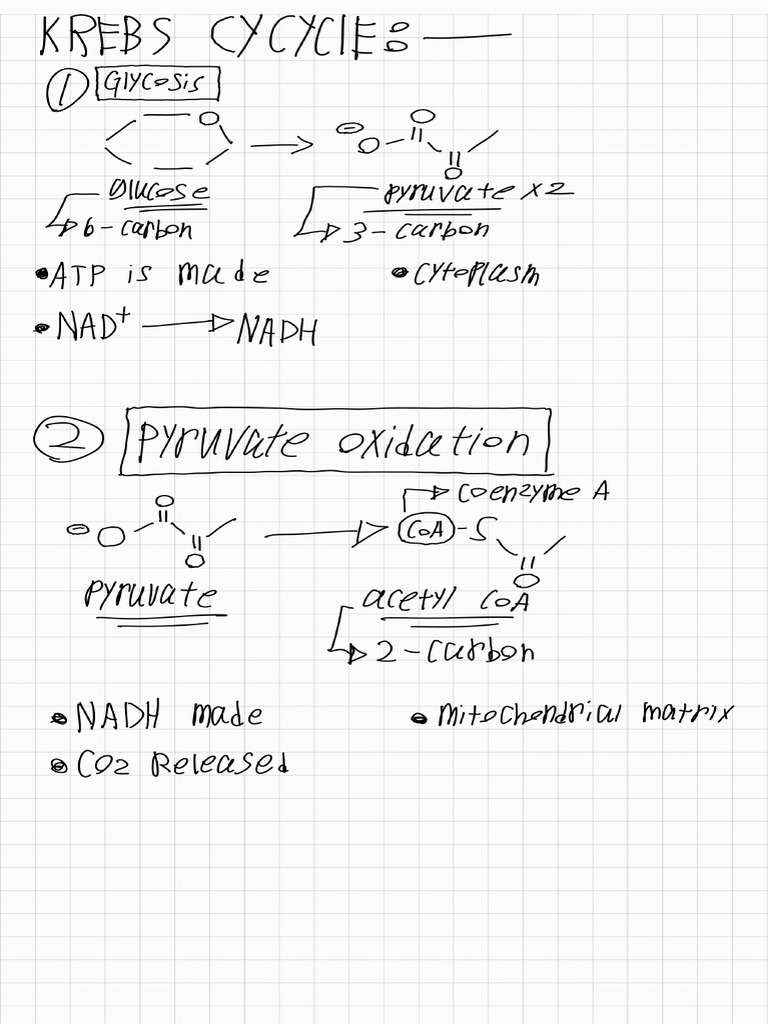 KREBS CYCYCIE:
① Glycosis
glucose
pyruvate x2
6-carbon
3-carbon
• ATP is made
• cytoplasm
• NAD+ → NADH
② pyruvate oxidation
coenzyme A
O
O
CoA-S
O
O
O
pyruvate
acetyl CoA
2-carbon
• NADH made
• mitochendrial matrix
• CO2 Released